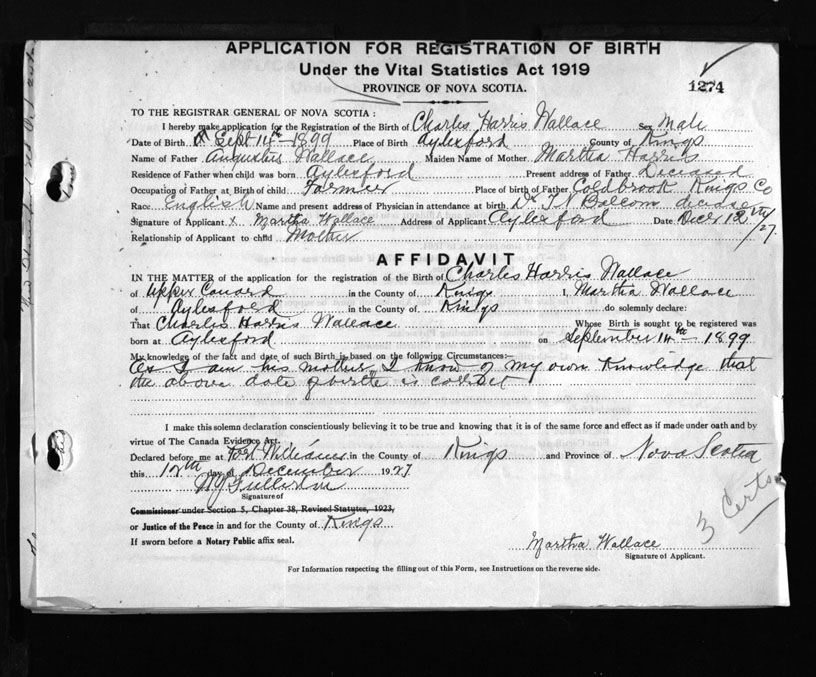 APPLICATION FOR REGISTRATION OF BIRTH
Under the Vital Statistics Act 1919
PROVINCE OF NOVA SCOTIA.
1274
TO THE REGISTRAR GENERAL OF NOVA SCOTIA :
I hereby make application for the Registration of the Birth of Charles Harris Wallace Sex Male
Date of Birth Sept 14th - 1899 Place of Birth Aylesford County of Kings
Name of Father Augustus Wallace Maiden Name of Mother Martha Harris
Residence of Father when child was born Aylesford Present address of Father Deceased
Occupation of Father at Birth of child Farmer Place of birth of Father Coldbrook Kings Co
Race English Name and present address of Physician in attendance at birth Dr. Balcom
Signature of Applicant x Martha Wallace Address of Applicant Aylesford Date Decr 12th/27.
Relationship of Applicant to child Mother
AFFIDAVIT
IN THE MATTER of the application for the registration of the Birth of Charles Harris Wallace
of Upper Canard in the County of Kings I, Martha Wallace
of Aylesford in the County of Kings do solemnly declare:
That Charles Harris Wallace Whose Birth is sought to be registered was
born at Aylesford on September 14th - 1899
My knowledge of the fact and date of such Birth is based on the following Circumstances:-
As I am his mother I know of my own knowledge that
the above date of birth is correct
I make this solemn declaration conscientiously believing it to be true and knowing that it is of the same force and effect as if made under oath and by
virtue of The Canada Evidence Act.
Declared before me at Port Williams in the County of Kings and Province of Nova Scotia
this 12th day of December 1927
Signature of
Commissioner under Section 5, Chapter 38, Revised Statutes, 1923,
or Justice of the Peace in and for the County of Kings
If sworn before a Notary Public affix seal.
Martha Wallace
Signature of Applicant.
3 Certs
For Information respecting the filling out of this Form, see Instructions on the reverse side.